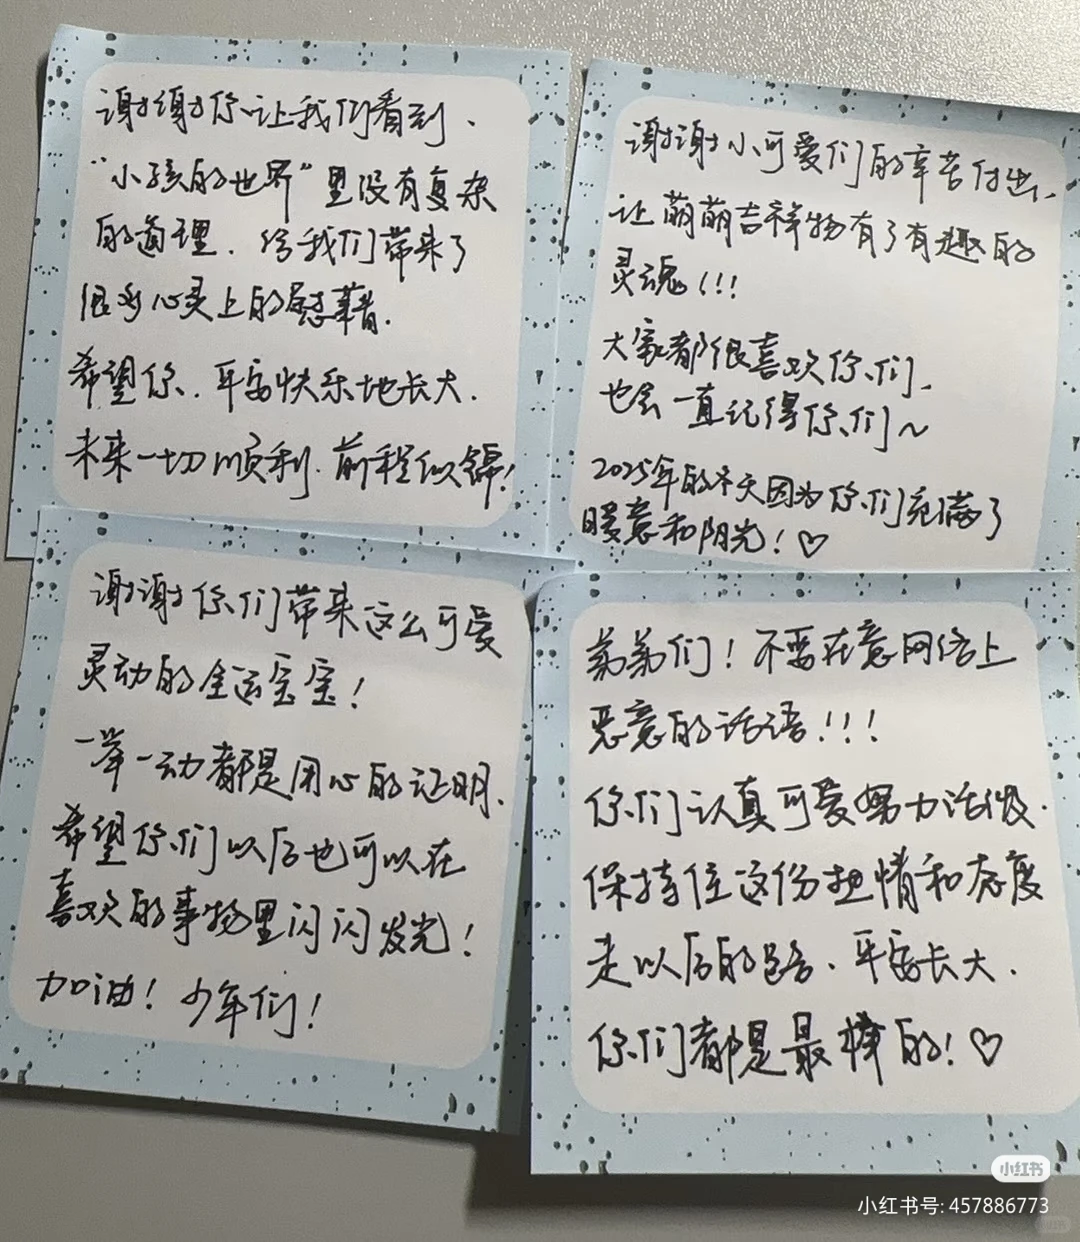 谢谢你让我们看到、
"小孩的世界"里没有复杂
的道理、给我们带来了
很多心灵上的慰藉.
希望你、平安快乐地长大.
未来一切顺利.前程似锦!
谢谢小可爱们的辛苦付出、
让萌萌吉祥物有了有趣的
灵魂!!!
大家都很喜欢你们、
也会一直记得你们~
2025年的冬天因为你们充满了
暖意和阳光!♡
谢谢你们带来这么可爱
灵动的全运宝宝!
一举一动都是用心的证明、
希望你们以后也可以在
喜欢的事物里闪闪发光!
加油!少年们!
弟弟们!不要在意网络上
恶意的话语!!!
你们认真可爱努力活泼.
保持住这份热情和态度
走以后的路、平安长大.
你们都是最棒的!♡
小红书
小红书号: 457886773